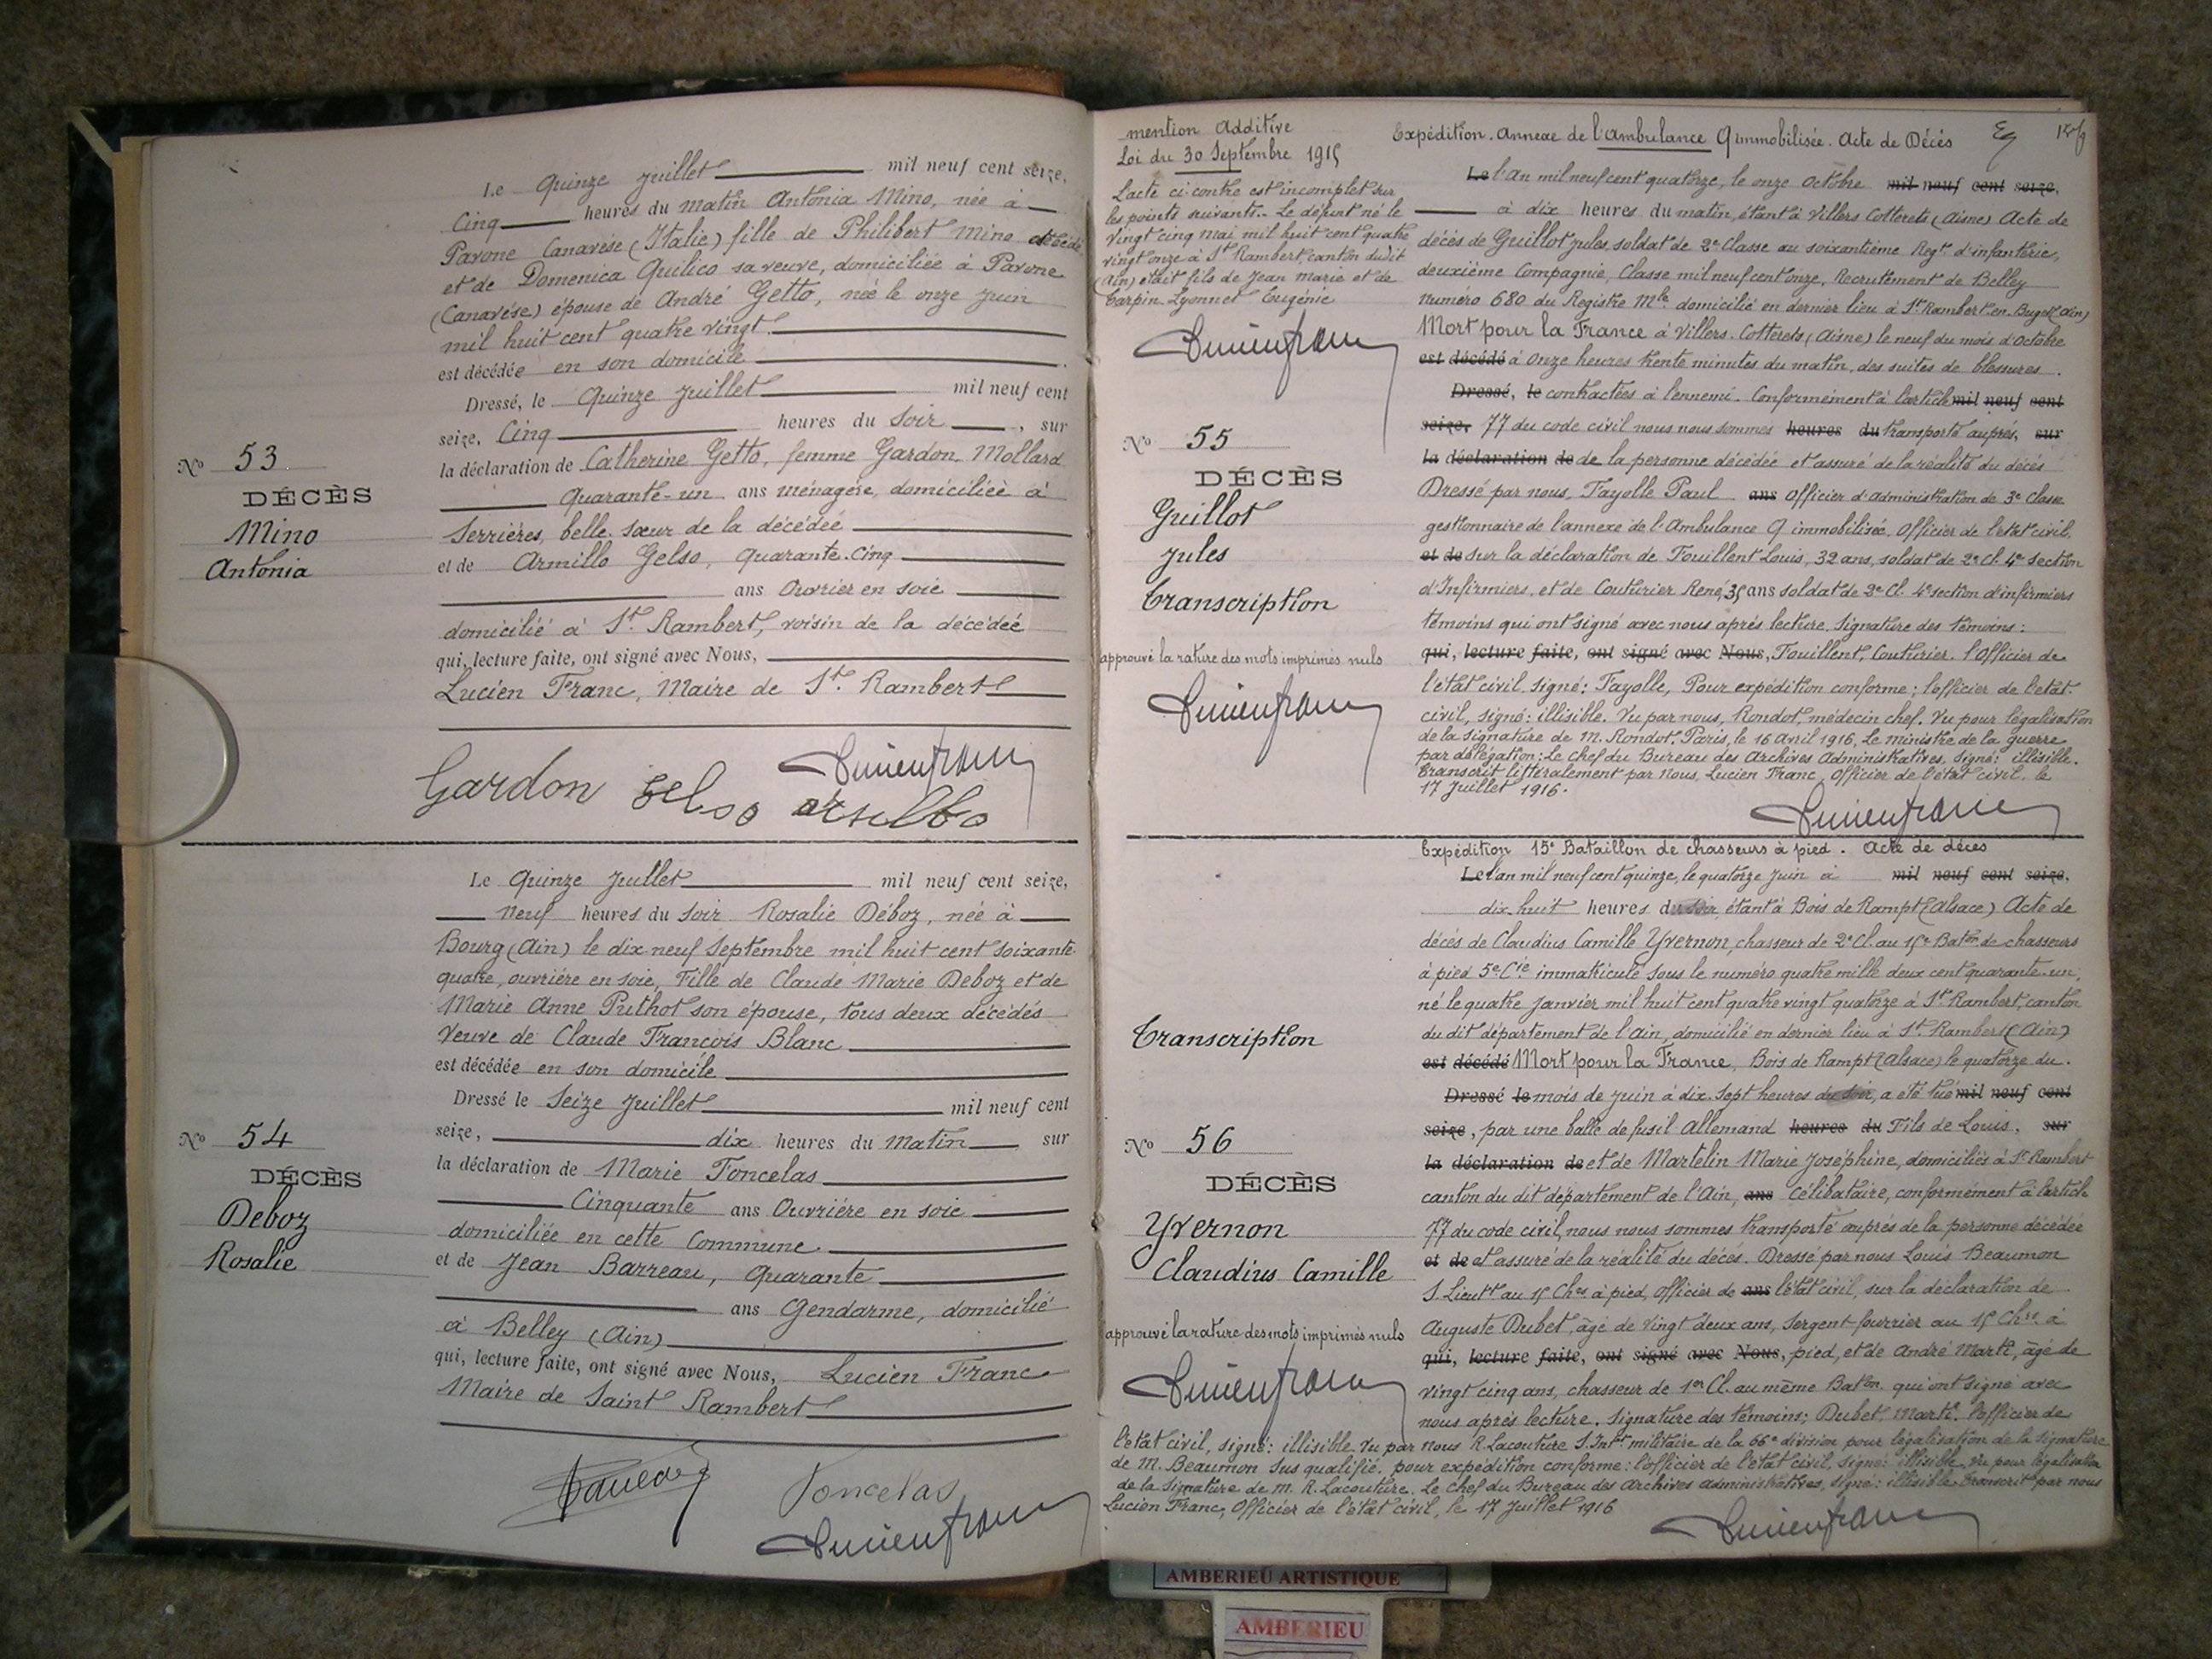 Le Quinze Juillet mil neuf cent seize,
Cinq heures du matin Antonia Mino, née à
Pavone Canavése (Italie) fille de Philibert Mino décédé
et de Domenica Quilico sa veuve, domiciliée à Pavone
(Canavése) épouse de André Getto, née le onze Juin
mil huit cent quatre vingt.
est décédée en son domicile
Dressé, le Quinze Juillet mil neuf cent
seize, Cinq heures du Soir, sur
la déclaration de Catherine Getto, femme Gardon Mollard
Quarante-un ans ménagère, domiciliée à
Serrières, belle sœur de la décédée
et de Armillo Gelso, Quarante-Cinq
ans Ouvrier en soie
domicilié à St. Rambert, voisin de la décédée
qui, lecture faite, ont signé avec Nous,
Lucien Franc, Maire de St. Rambert
No 53
DÉCÈS
Mino
Antonia
Gardon Gelso Lucien franc
Le Quinze Juillet mil neuf cent seize,
Neuf heures du Soir Rosalie Déboz, née à
Bourg (Ain) le dix neuf Septembre mil huit cent soixante
quatre, ouvrière en soie, Fille de Claude Marie Deboz et de
Marie Anne Puthot son épouse, tous deux décédés
Veuve de Claude François Blanc
est décédée en son domicile
Dressé le Seize Juillet mil neuf cent
seize, dix heures du Matin sur
la déclaration de Marie Foncelas
Cinquante ans Ouvrière en soie
domiciliée en cette Commune.
et de Jean Barreau, Quarante
ans Gendarme, domicilié
à Belley (Ain)
qui, lecture faite, ont signé avec Nous, Lucien Franc
Maire de Saint Rambert
No 54
DÉCÈS
Deboz
Rosalie
Foncelas
Lucien franc
mention Additive
Loi du 30 Septembre 1915
L'acte ci-contre est incomplet sur
les points suivants.. Le défunt né le
vingt cinq mai mil huit cent quatre
vingt onze à St Rambert, canton dudit
(Ain) était fils de Jean Marie et de
Carpin Lyonnet Eugénie
Lucien franc
No 55
DÉCÈS
Guillot
Jules
Transcription
approuvé la rature des mots imprimés nuls
Lucien franc
Expédition. Annexe de l'Ambulance 9 immobilisée. Acte de Décès
Le l'An mil neuf cent quatorze, le onze Octobre mil neuf cent seize,
à dix heures du matin, étant à Villers Cotterets (Aisne) Acte de
décès de Guillot Jules, soldat de 2e Classe au soixantième Regt. d'infanterie,
deuxième Compagnie, Classe mil neuf cent onze, Recrutement de Belley
numéro 680 du Registre Mle. domicilié en dernier lieu à St Rambert-en-Bugey (Ain)
Mort pour la France à Villers-Cotterets (Aisne) le neuf du mois d'Octobre
est décédé à Onze heures trente minutes du matin, des suites de blessures.
Dressé, le contractées à l'ennemi. Conformément à l'article mil neuf cent
seize, 77 du code civil nous nous sommes heures du transporté auprès, sur
la déclaration de de la personne décédée et assuré de la réalité du décès
Dressé par nous, Fayolle Paul ans Officier d'administration de 3e Classe
gestionnaire de l'annexe de l'Ambulance 9 immobilisée, Officier de l'état civil,
et de sur la déclaration de Fouillent Louis, 32 ans, soldat de 2e Cl. 4e section
d'Infirmiers, et de Couturier René, 35 ans soldat de 2e Cl. 4e section d'infirmiers
témoins qui ont signé avec nous après lecture. Signature des témoins:
qui, lecture faite, ont signé avec Nous, Fouillent, Couturier. l'Officier de
l'état civil, signé: Fayolle, Pour expédition conforme; l'officier de l'état
civil, signé: illisible. Vu par nous, Rondot, médecin chef. Vu pour légalisation
de la signature de M. Rondot. Paris, le 16 Avril 1916, Le ministre de la guerre
par délégation: Le chef du Bureau des Archives Administratives, signé: illisible.
Transcrit littéralement par Nous, Lucien Franc, Officier de l'état civil, le
17 Juillet 1916.
Lucien franc
Expédition 15e Bataillon de chasseurs à pied. Acte de décès
Le l'an mil neuf cent quinze, le quatorze Juin à mil neuf cent seize,
dix-huit heures du soir, étant à Bois de Rampt (Alsace) Acte de
décès de Claudius Camille Yvernon, chasseur de 2e Cl. au 15e Baton de chasseurs
à pied 5e Cie immatriculé sous le numéro quatre mille deux cent quarante-un,
né le quatre Janvier mil huit cent quatre vingt quatorze à St Rambert, canton
du dit département de l'Ain, domicilié en dernier lieu à St. Rambert (Ain)
est décédé Mort pour la France, Bois de Rampt (Alsace) le quatorze du.
Dressé le mois de Juin à dix-sept heures du soir, a été tué mil neuf cent
seize, par une balle de fusil Allemand heures du Fils de Louis, sur
la déclaration de et de Martelin Marie Joséphine, domiciliés à St Rambert
canton du dit département de l'Ain, ans Célibataire, conformément à l'article
77 du code civil, nous nous sommes transporté auprès de la personne décédée
et de et assuré de la réalité du décès. Dressé par nous Louis Beaumon
S. Lieutt au 15 Chrs à pied, Officier de ans l'état civil, sur la déclaration de
Auguste Dubet, âgé de vingt deux ans, Sergent-fourrier au 15 Chrs à
qui, lecture faite, ont signé avec Nous, pied, et de André Marti, âgé de
vingt cinq ans, chasseur de 1er Cl. au même Baton. qui ont signé avec
nous après lecture. Signature des témoins; Dubet, Marti. l'officier de
l'état civil, signé: illisible. Vu par nous R. Lacouture S. Intt militaire de la 66e division pour légalisation de la signature
de M. Beaumon sus qualifié. pour expédition conforme: l'officier de l'état civil, signé: illisible. Vu pour légalisation
de la signature de M. R. Lacouture. Le chef du Bureau des Archives administratives, signé: illisible. Transcrit par nous
Lucien Franc, Officier de l'état civil, le 17 Juillet 1916
Lucien franc
Transcription
No 56
DÉCÈS
Yvernon
Claudius Camille
approuvé la rature des mots imprimés nuls
Lucien franc
AMBERIEU ARTISTIQUE
AMBERIEU